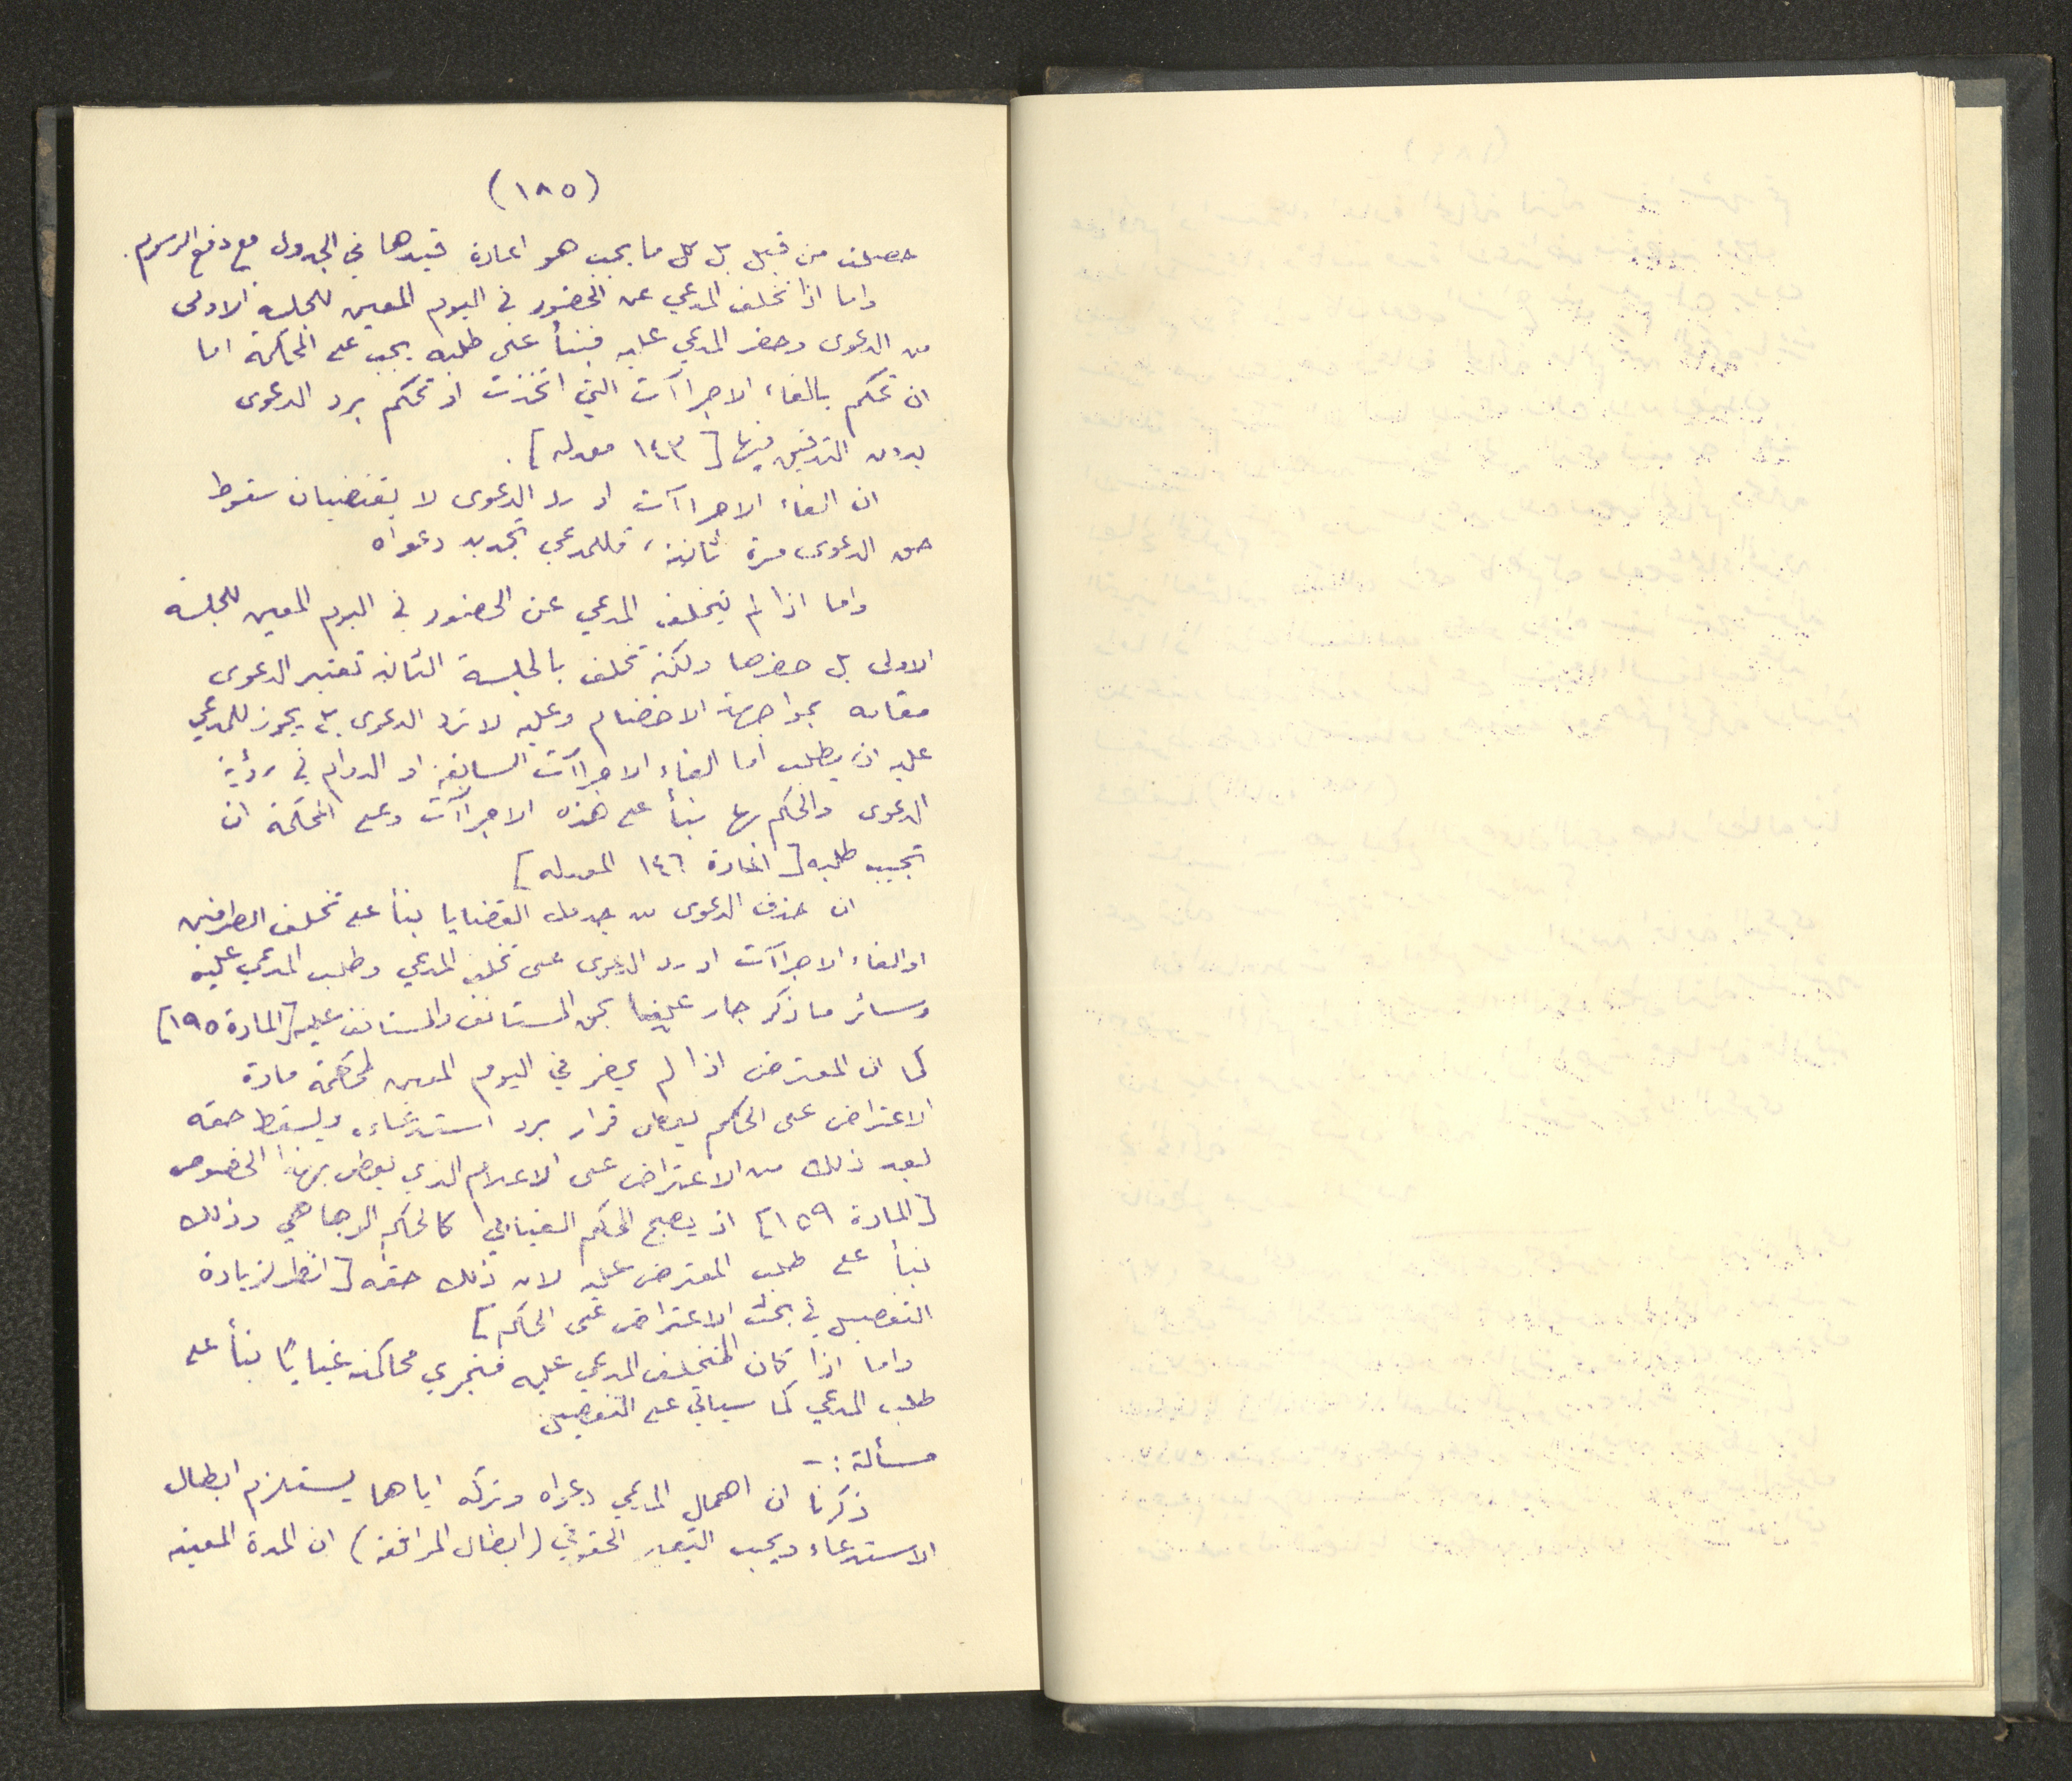 (١٨٥)
حصلت من قبل بل كل ما يجب هو اعادة قيدها في الجدول مع دفع الرسوم.
واما اذا تخلف المدعي عن الحضور في اليوم المعين للجلسة الاولى
من الدعوى وحضر المدعي عليه فبنأ على طلبه يجب على المحكمة اما
ان تحكم بالغاء الاجراآت التي اتخذت او تحكم برد الدعوى
بدون التدقيق فيها [١٤٣ معدله].
ان الغاء الاجراآت او رد الدعوى لا يقتضيان سقوط
حق الدعوى مرة ثانية، فللمدعي تجديد دعواه
واما اذا لم يتخلف المدعي عن الحضور في اليوم المعين للجلسة
الاولى بل حضرها ولكنه تخلف بالجلسة الثانية تعتبر الدعوى
مقامه بمواجهة الاخصام وعليه لا ترد الدعوى بل يجوز للمدعي
عليه ان يطلب اما الغاء الاجراآت السابقة او الدوام في رؤية
الدعوى والحكم بها بنأ على هذه الاجراآت وعلى المحكمة ان
تجيب طلبه [المادة ١٤٦ المعدله]
ان حذف الدعوى من جدول القضايا بنأ على تخلف الطرفين
او الغاء الاجراآت او رد الدعوى على تخلف المدعي وطلب المدعي عليه
وسائر ما ذكر جار بحق المستانف والمستانف عليه [المادة ١٩٥]
كما ان المعترض اذا لم يحضر في اليوم المعين لمحاكمة مادة
الاعتراض على الحكم يعطى قرار برد استدعاءه ويسقط حقه
بعد ذلك من الاعتراض على الاعلام الذي يعطى بهذا الخصوص
[المادة ١٥٩] اذ يصبح الحكم الغيابي كالحكم الوجاهي وذلك
بنأ على طلب المعترض عليه لان ذلك حقه [انظر لزيادة
التفصيل في بحث الاعتراض على الحكم]
واما اذا كان المتخلف المدعي عليه فتجري محاكمته غيابيًا بنأ على
طلب المدعي كما سيأتي على التفصيل
مسألة :-
ذكرنا ان اهمال المدعي دعواه وتركه اياها يستلزم ابطال
الاستدعاء وبحسب التعبير الحقوقي (ابطال المرافعة) ان المدة المعينه